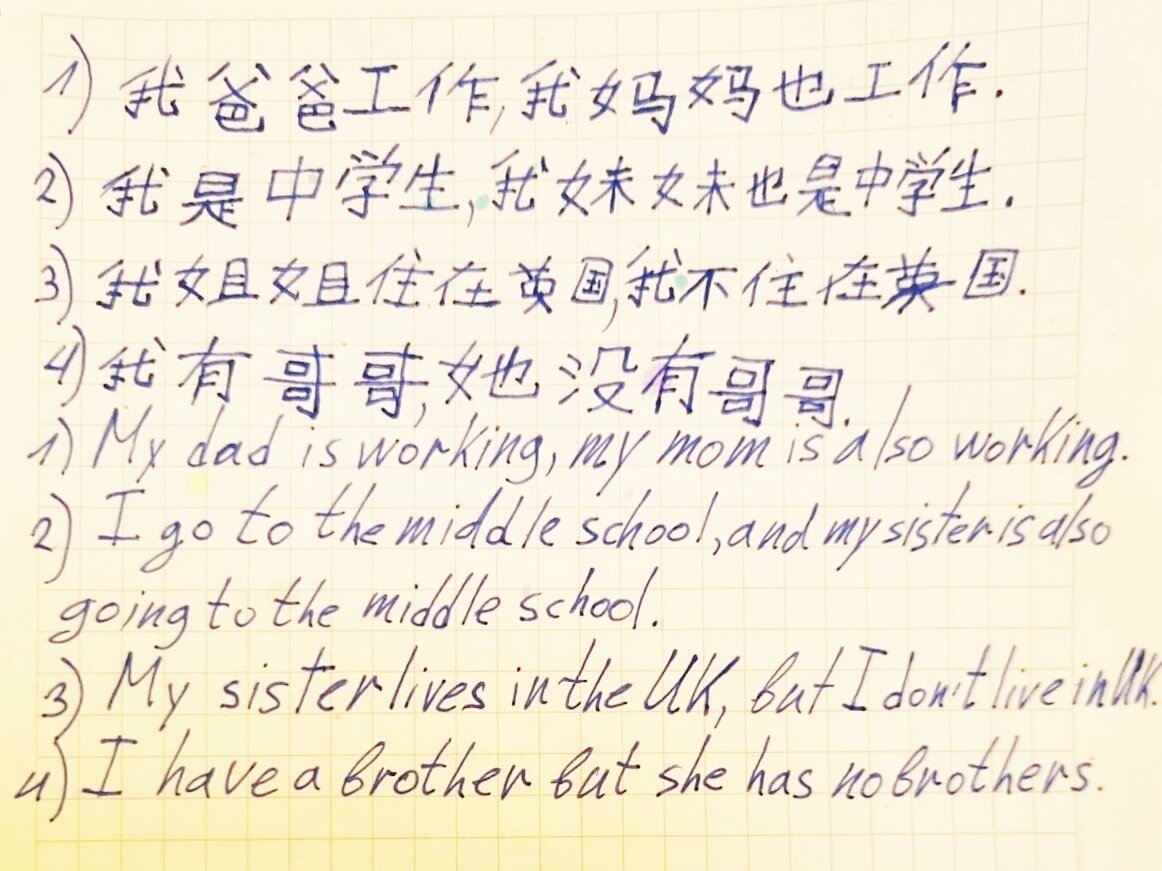 1) 我爸爸工作,我妈妈也工作.
2) 我是中学生,我妹妹也是中学生.
3) 我姐姐住在英国,我不住在英国.
4) 我有哥哥,她没有哥哥.
1) My dad is working, my mom is also working.
2) I go to the middle school, and my sister is also
going to the middle school.
3) My sister lives in the UK, but I don't live in UK.
4) I have a brother but she has no brothers.